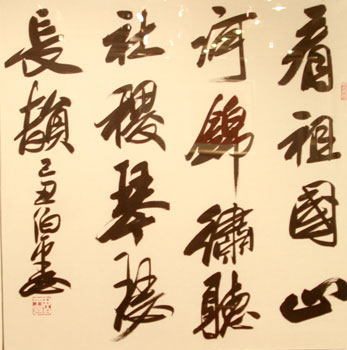 看祖國山
河錦繡聽
社稷琴瑟
長韻己丑伯